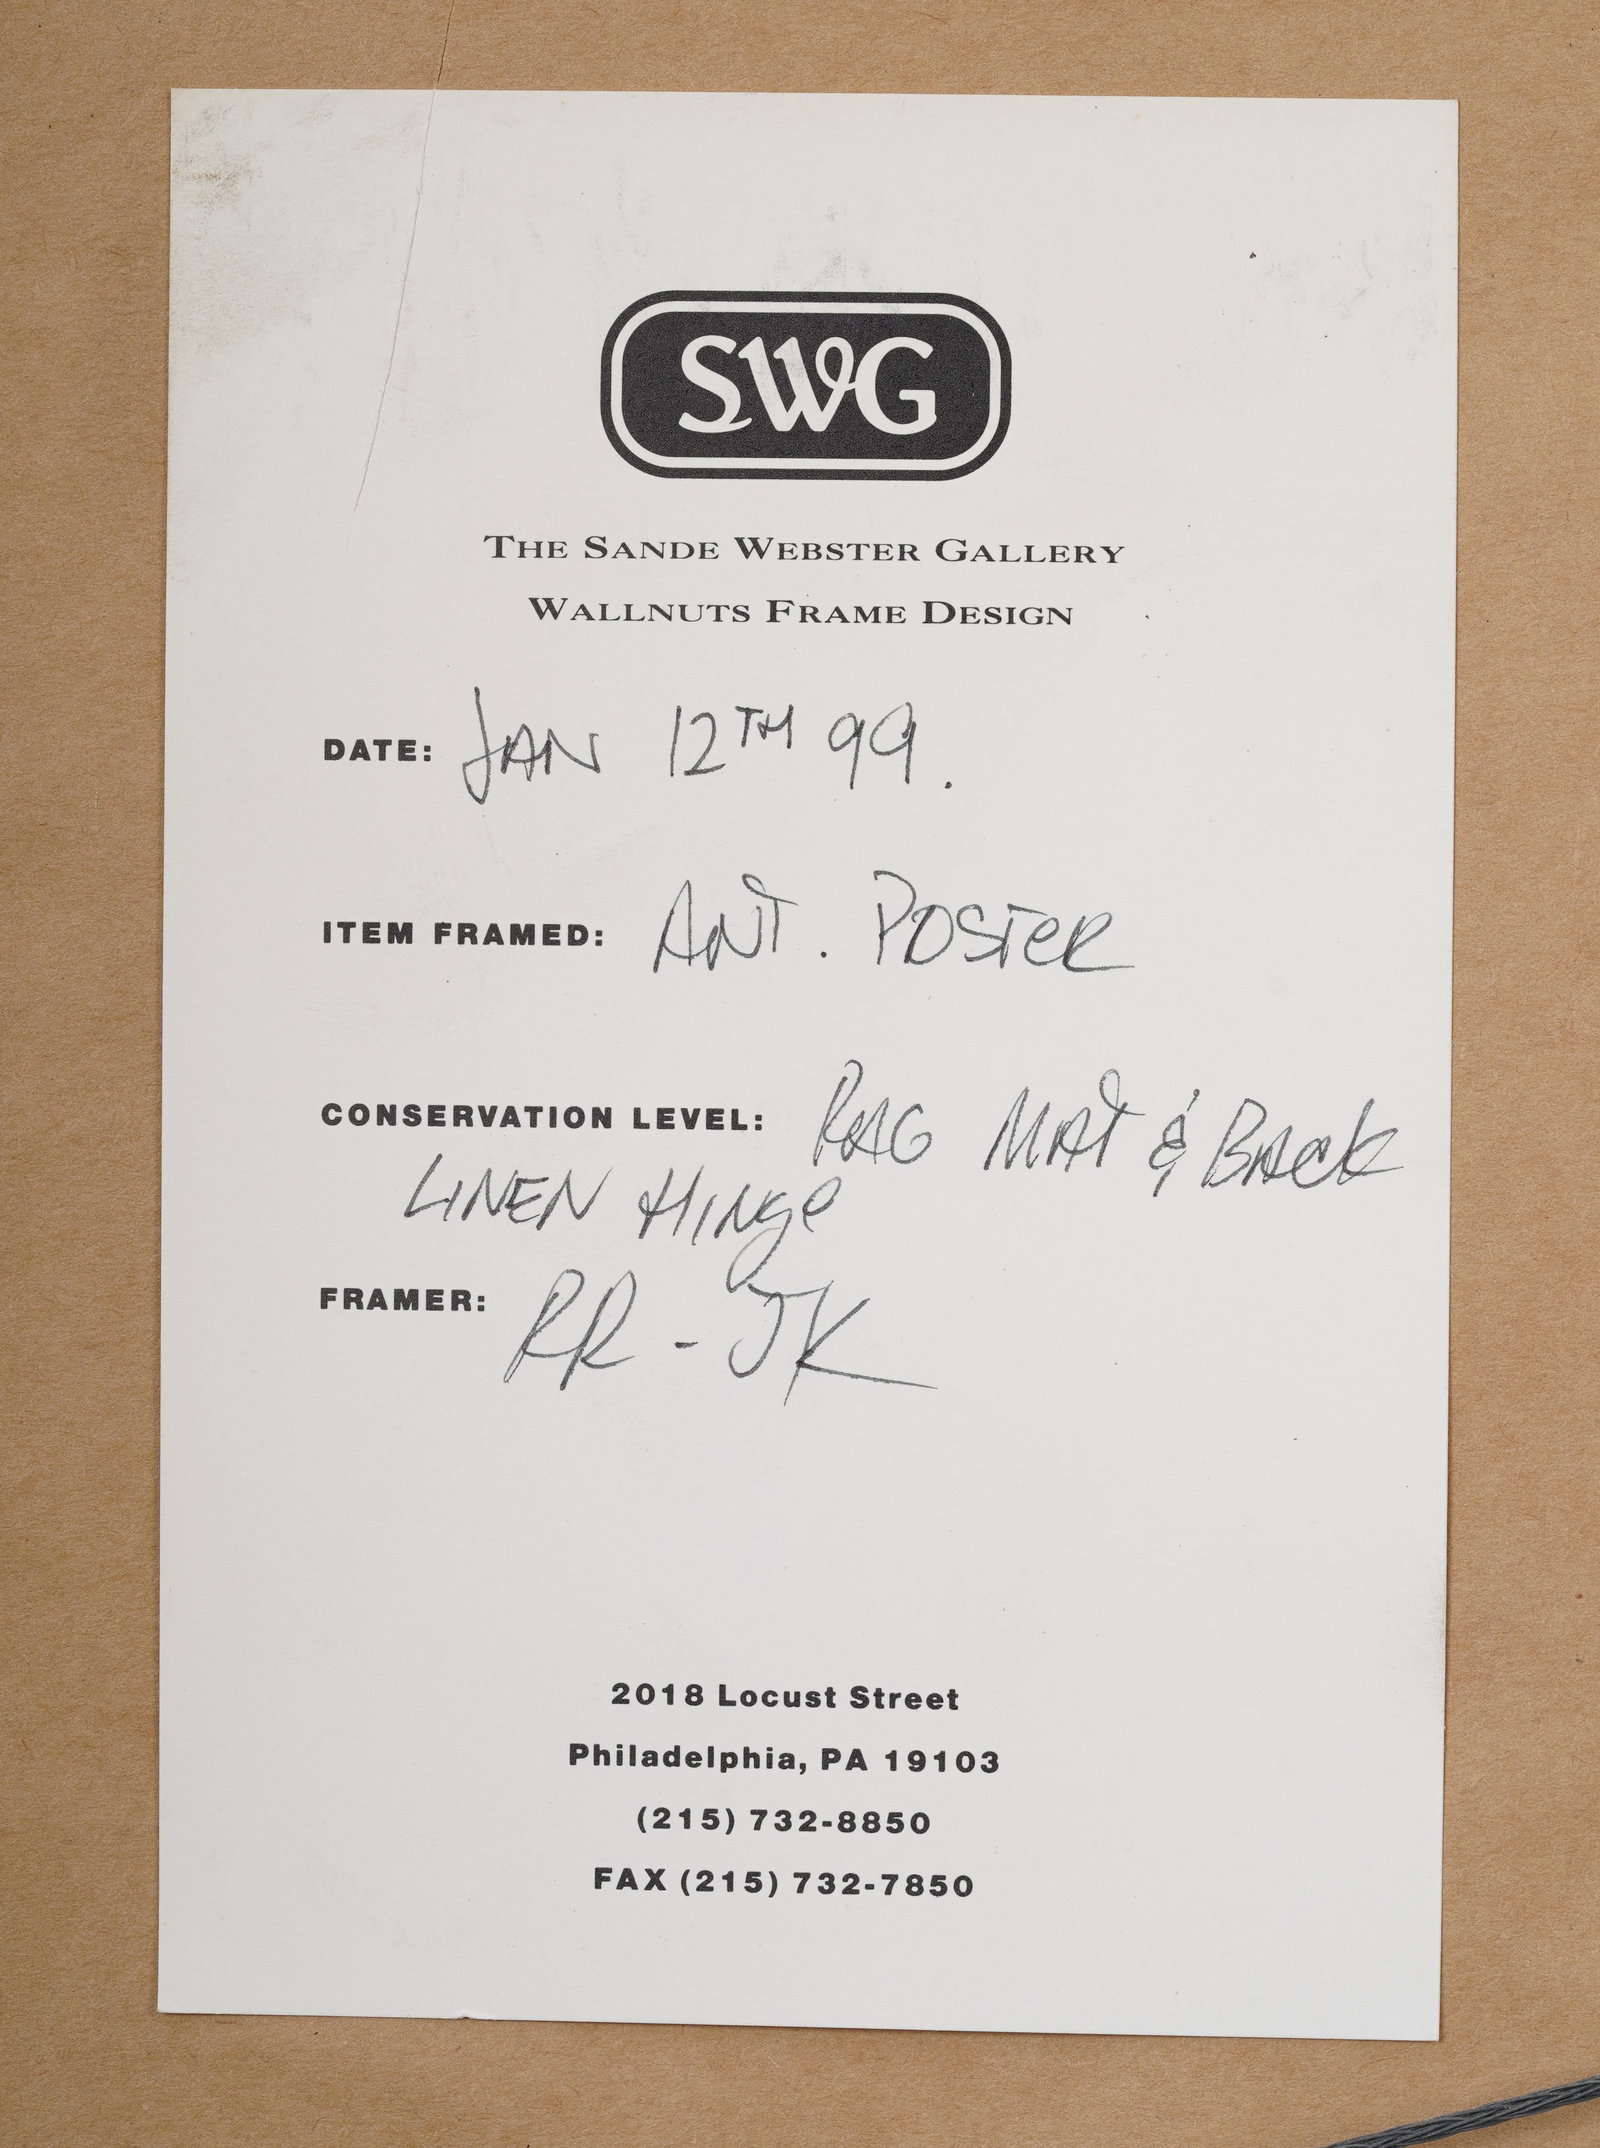 SWG
THE SANDE WEBSTER GALLERY
WALLNUTS FRAME DESIGN
DATE: JAN 12TH 99.
ITEM FRAMED: ANT. POSTER
CONSERVATION LEVEL: RAG MAT & BACK
LINEN HINGE
FRAMER: RR - JK
2018 Locust Street
Philadelphia, PA 19103
(215) 732-8850
FAX (215) 732-7850